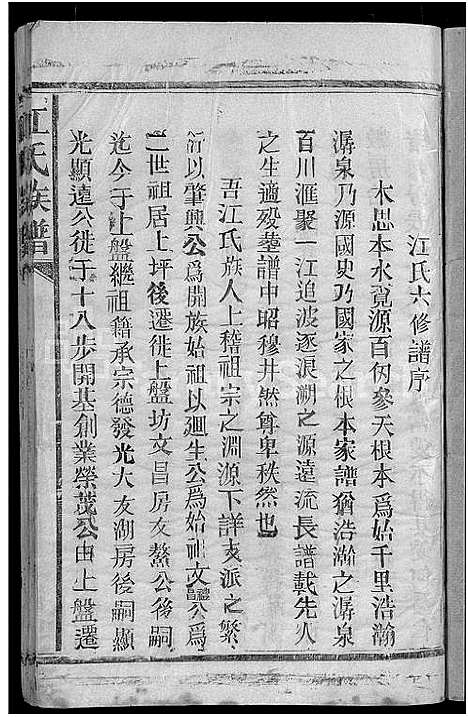 江氏六修譜序
木思本水覓源百仞參天根本爲始千里浩瀚
潺泉乃源國史乃國家之根本家譜猶浩瀚之潺泉
百川滙聚一江追波逐浪溯之源遠流長譜載先人
之生適歿塟譜中昭穆井然尊卑秩然也
吾江氏族人上稽祖宗之淵源下詳支派之繁
衍以肇興公爲開族始祖以廻生公爲始祖文禮昌公爲
二世祖居上坪後遷徙上盤坊文昌房友鰲公後嗣
迄今于上盤繼祖籍承宗德發光大友湖房後嗣顯
光顯遠公徙于十八步開基創業榮茂公由上盤遷
江氏族譜